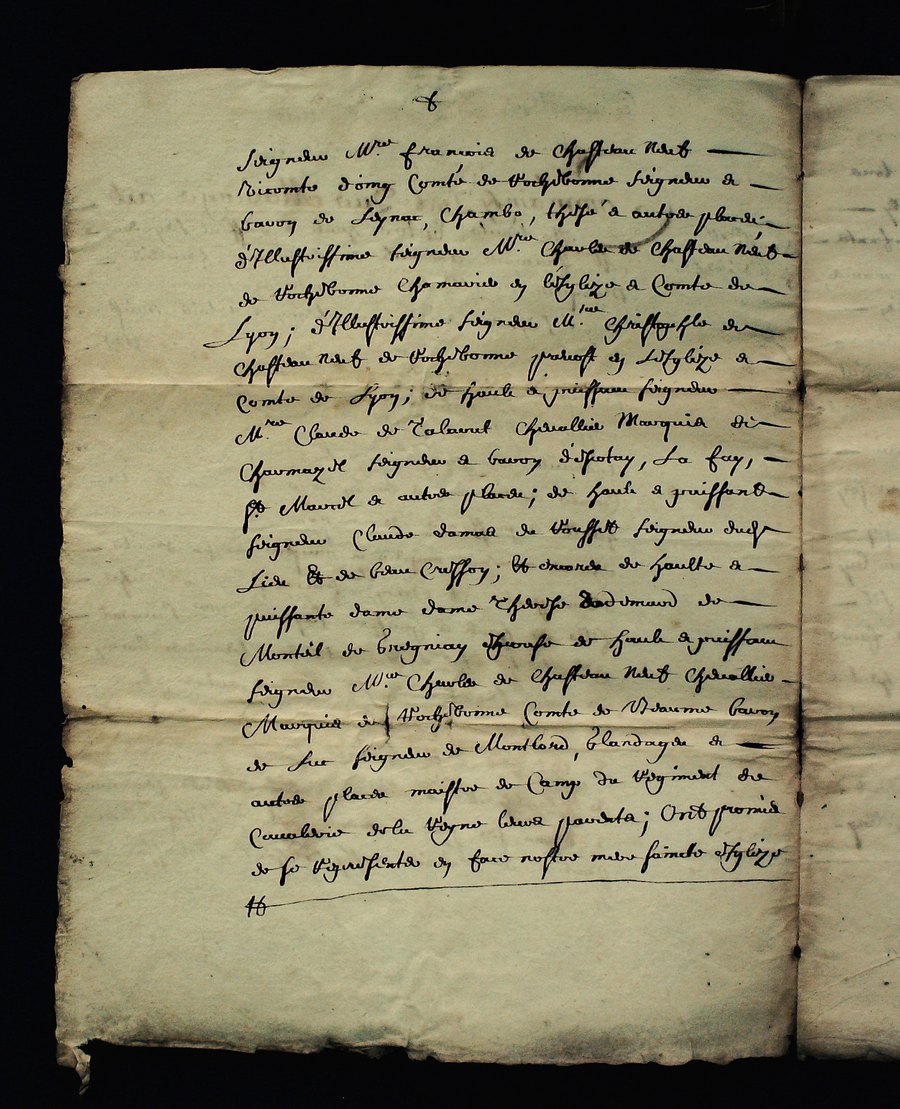 seigneur Mre francois de Chasteau Neuf
Vicomte d'oing Comte de Rochebonne seigneur et
baron de Leynac, Chambo, thesé et autres places
d'Illustrissime seigneur Mre Charles de Chasteau neuf
de Rochebonne Chamarier en l'esglize et Comte de
Lyon; d'Illustrissime seigneur Mre Christophle de
Chasteau neuf de Rochebonne prevost en L'esglize et
Comte de Lyon; de hault et puissant seigneur
Mre Claude de Talaru Chevallier Marquis de
Charmazel seigneur et baron d'escotay, La fay,
st Marcel et autres places; de hault et puissant
seigneur Claude damas du Rousset seigneur dudt
Lieu et de beau Cresson; et encores de haulte et
puissante dame dame Therese dademard de
Monteil de Gregnian espouse de hault et puissant
seigneur Mre Charles de Chasteau Neuf Chevallier
Marquis de Rochebonne Comte de Beaume baron
de Luc seigneur de Montlord, blandages et
autres places maistre de Camp du Regiment de
Cavalerie de la Reyne leurs parents; Ont promis
de se representer en face nostre mere saincte esglize